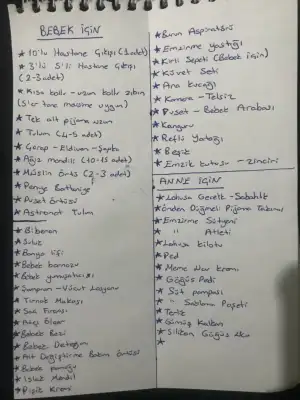 BEBEK İÇİN
* 10'lu Hastane Çıkışı (1 adet)
* 3'lü 5'li Hastane Çıkışı
(2-3 adet)
* Kısa kollu - uzun kollu zıbın
(5'er tane mevsime uygun)
* Tek alt pijama uzun
* Tulum (4-5 adet)
* Çorap - Eldiven - Şapka
* Ağız mendili (10-15 adet)
* Müslin Örtü (2-3 adet)
* Penye Battaniye
* Puset örtüsü
* Astronot Tulum
* Biberon
* Suluk
* Banyo lifi
* Bebek bornozu
* Bebek yumuşatıcısı
* Şampuan - Vücut Losyonu
* Tırnak Makası
* Saç Fırçası
* Ateş Ölçer
* Bebek Bezi
* Bebek Deterjan
* Alt Değiştirme Bakım örtüsü
* Bebek pamuğu
* Islak Mendil
* Pişik Kremi
* Burun Aspiratörü
* Emzirme yastığı
* Kirli Sepeti (Bebek için)
* Küvet Seti
* Ana Kucağı
* Kamera - Telsiz
* Puset - Bebek Arabası
* Kanguru
* Reflü Yatağı
* Beşik
* Emzik kutusu - zinciri
ANNE İÇİN
* Lohusa Gecelik - Sabahlık
* Önden Düğmeli Pijama Takımı
* Emzirme Sütyeni
* " Atleti
* Lohusa kilotu
* Ped
* Meme Ucu kremi
* Göğüs Pedi
* Süt pompası
* " Saklama Poşeti
* Terlik
* Gümüş Kalkan
* Silikon Göğüs Ucu
*